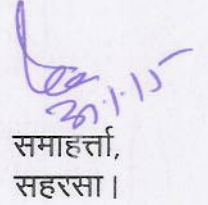 31.1.15
समाहर्त्ता,
सहरसा।